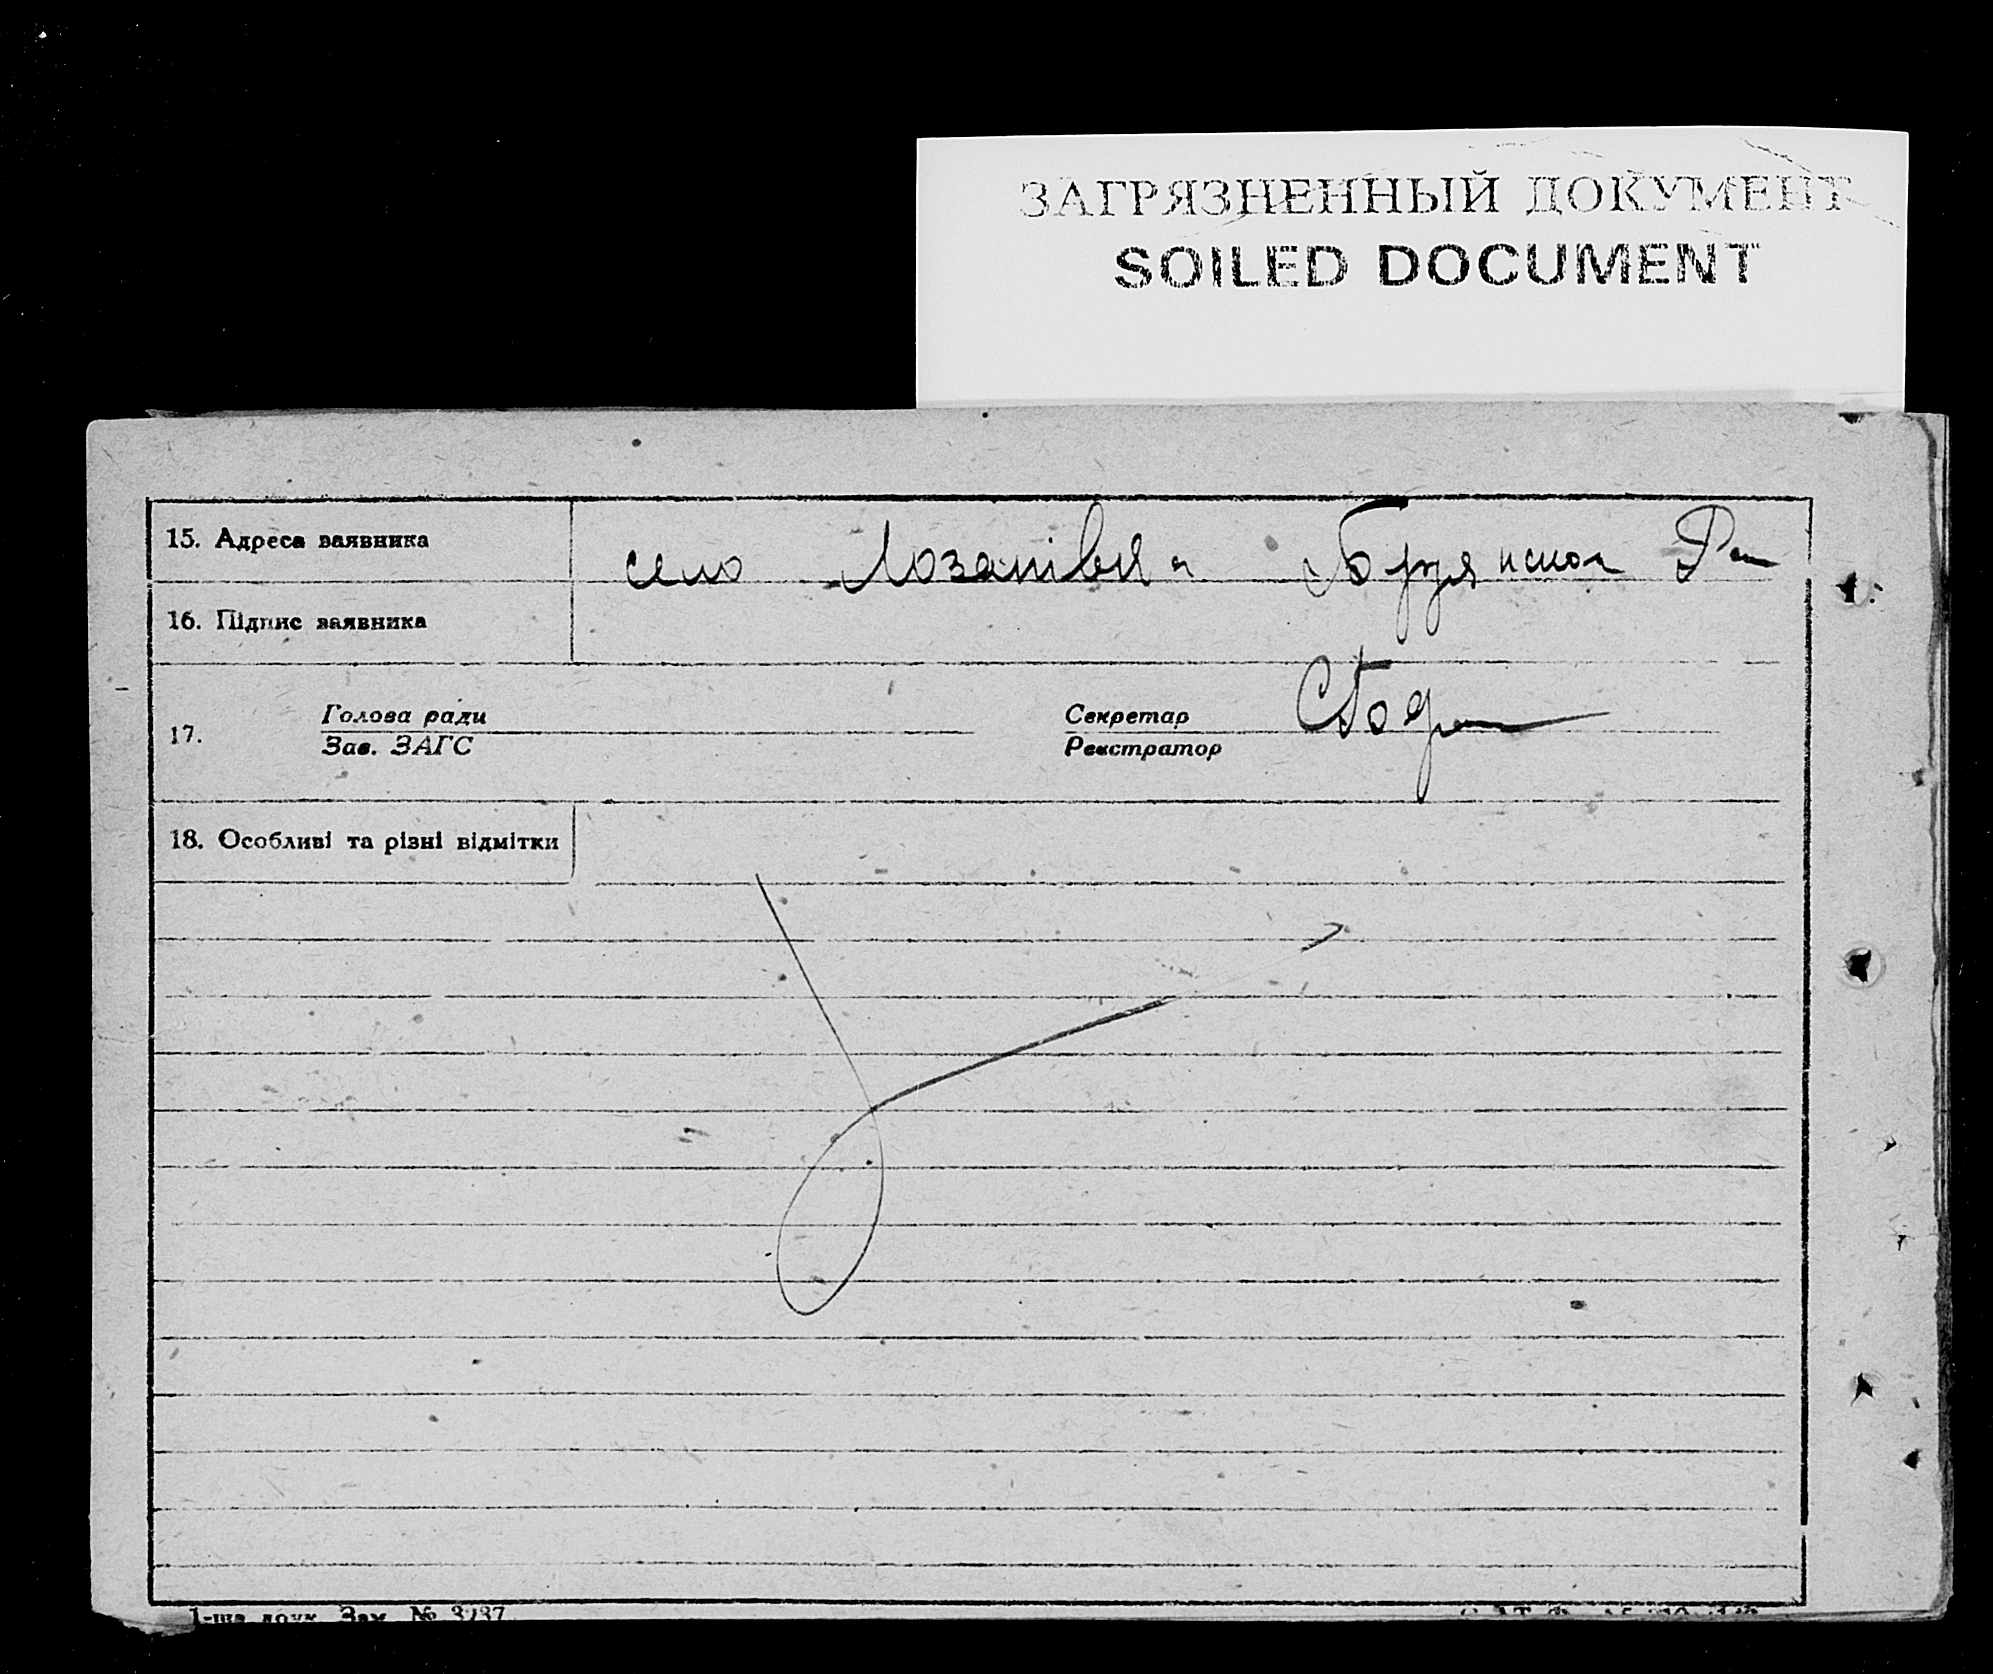 ЗАГРЯЗНЕННЫЙ ДОКУМЕНТ
SOILED DOCUMENT
15. Адреса заявника село Лозанівка
16. Підпис заявника
17. Голова ради Секретар
Зав. ЗАГС Реєстратор
18. Особливі та різні відмітки
1-ша друк. Зам. № 3237